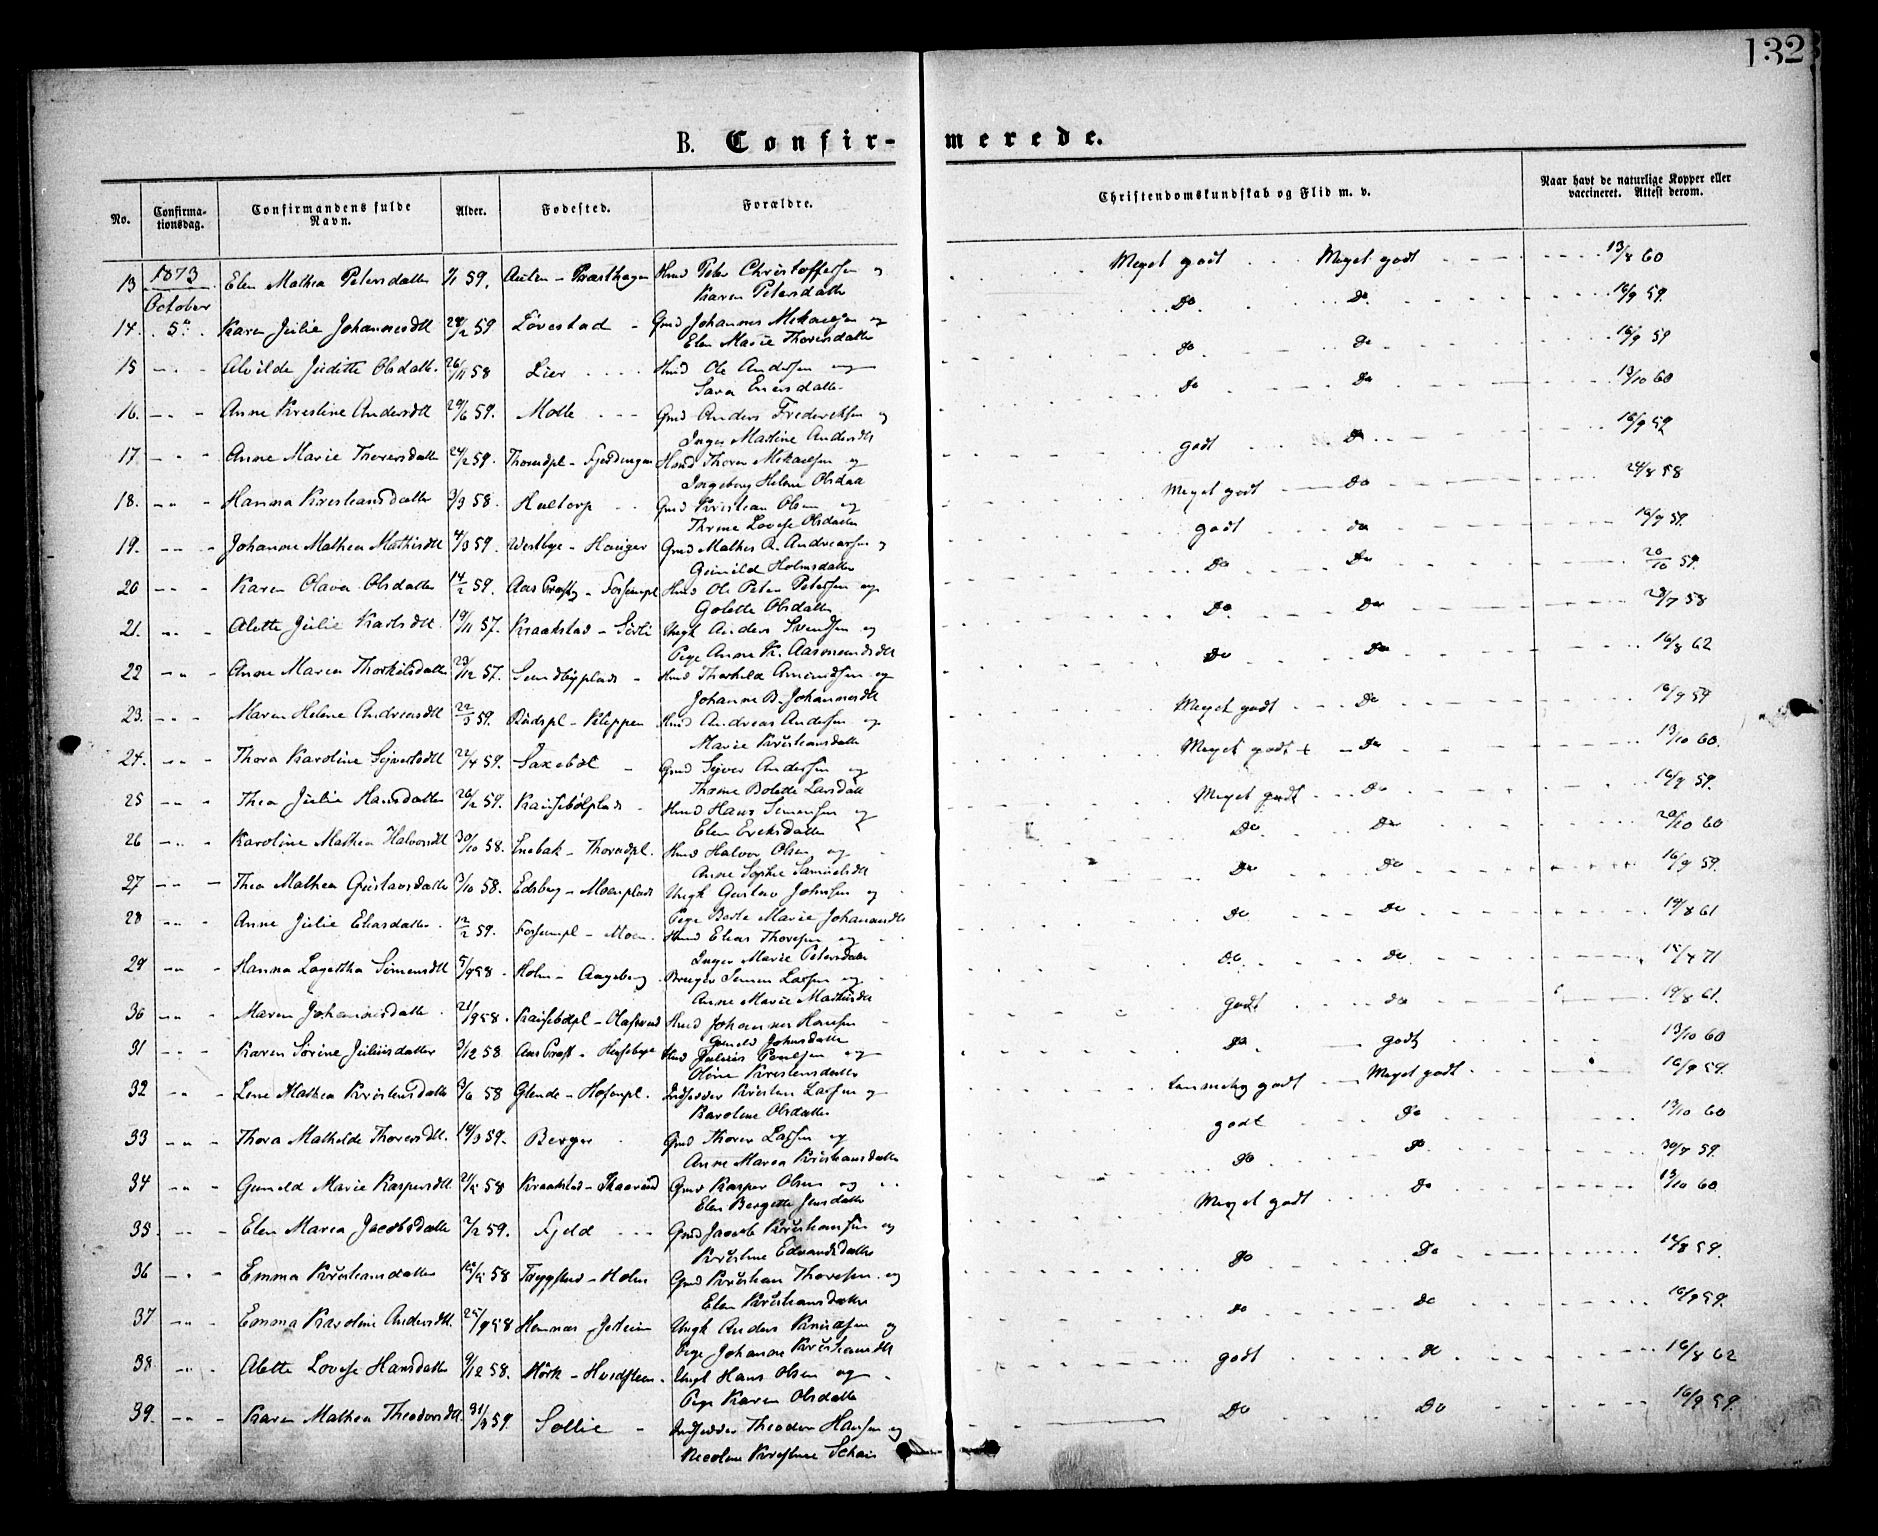 132
B. Confir- merede.
No. Confirma-tionsdag. Confirmandens fulde Navn. Alder. Fødested. Forældre. Christendomskundskab og Flid m. v. Naar havt de naturlige Kopper eller vaccineret. Attest derom.
13 1873 Elen Mathea Petersdatter 59. Hmd Peter Christoffersen og Meget godt Meget godt 13/8 60
October Karen Petersdatter
14. 5te Karen Julie Johannesdtt 24/2 59 Løvestad Gmd Johannes Mikaelsen og Do Do 16/9 59.
Elen Marie Thoresdatter
15 Alvilde Judithe Olsdatter. 26/11 58 Lier Hmd Ole Andersen og Do Do 16/9 59
Sara
16. Anne Kristine Andersdtt 29/6 59. Molle Gmd Anders Frederiksen og Do Do 13/10 60
Inger Martine Andersdtt
17 Anne Marie Thoresdatter 24/2 59. Hmd Thorer Mikaelsen og godt Do 16/9 59
Ingeborg Helene Olsdatt
18. Hanna Kristiansdatter 3/3 58. Gmd Kristian Olsen og Meget godt Do 24/8 58
Thrine Lovise Olsdatter
19. Johanne Mathea Mathisdtt 4/3 59. Westbye - Gmd Mathis A. Andreassen og godt do 16/9 59.
Gunild Holmsdatter
20 Karen Olava Olsdatter 14/2 59. Hmd Ole Peter Petersen og Do Do 20/10 59
Golette Olsdatter
21. Alette Julie Karlsdtt. 19/11 57. Kraakstad - Ungk Anders Svendsen og Do Do 28/7 58
Pige Anne K. Aasmundsdtt
22 Anne Maria Thorkilsdatter 23/12 57. Sundbyplads Hmd Thorkild Amundsen og Do Do 16/8 62
Johanne B. Johannesdtt
23. Maren Helene Andreasdtt 22/3 59. - Kleppen Hmd Andreas Andersen og Meget godt Do 16/9 59
Marie Kristiansdatter
24. Thora Karoline Sejvertsdtt 22/4 59. Saxebøl Gmd Sejver Andersen og Meget godt + Do 13/10 60.
Thrine Bolette Larsdatt
25 Thea Julie Hansdatter 26/2 59. Hmd Hans Simensen og Meget godt Do 16/9 59.
Elen Eriksdatter
26 Karoline Mathea Halvorsdtt 30/10 58. Enebak - Thorudpl. Hmd Halvor Olsen og Do Do 20/10 60
Anne Sophie Samuelsdtt
27 Thea Mathea Gustavsdatter 3/10 58. Edsberg - Moenplads Ungk Gustav Johnsen og Do Do 16/9 59.
Pige Berte Marie Johannesdtt
28 Anne Julie Eliasdatter. 12/2 59. - Moen. Hmd Elias Thoresen og Do Do 19/8 61
Inger Marie Petersdatter
29 Hanna Lagertha Simensdtt 5/9 58 Holm - Angeberg Bruger Simen Larsen og Do do 15/4 71
Anne Marie
30 Maren Johannesdatter 21/9 58. Hmd Johannes Hansen godt do 19/8 61.
Gunild Johnsdatter
31 Karen Sørine Juliusdatter 9/12 58 Hmd Julius Poulsen og Do godt 13/10 60
Oline Kristensdatter
32 Lene Mathea Kristensdatter 3/6 58 Glende - Indsidder Kristen Larsen og temmelig godt Meget godt 16/9 59.
Karoline Olsdatter
33 Thora Mathilde Thoresdtt. 19/3 59. Berger Gmd Thorer Larsen og godt Do 13/10 60
Anne Maria Kristiansdatter
34 Gunild Marie Kaspersdtt 58 Kraakstad - Skaarud Gmd Kasper Olsen og Do Do 30/7 59.
Elen Bergitte Jensdatter
35. Elen Maria Jacobsdatter 7/2 59. Fjeld Gmd Jacob Kristiansen og Meget godt Do 13/10 60
Kristine Edvardsdatter
36 Emma Kristiansdatter 58 Trygstad - Holm Gmd Kristian Thoresen og Do Do 59.
Elen Kristiansdatter
37. Emma Karoline Andersdtt. 25/9 58 Hemnæs - Ungk Anders og Do Do 16/9 59.
Pige Johanne Kristiansdtt
38. Alette Lovise Hansdatter 9/12 58. Mørk - Hvidsteen Ungk Hans Olsen og godt do 16/8 62
Pige Karen Olsdatter
39. Karen Mathea Theodorsdtt. 31/3 59. Sollie Indsidder Theodor Hansen og Do Do 16/9 59.
Nicoline Kristine